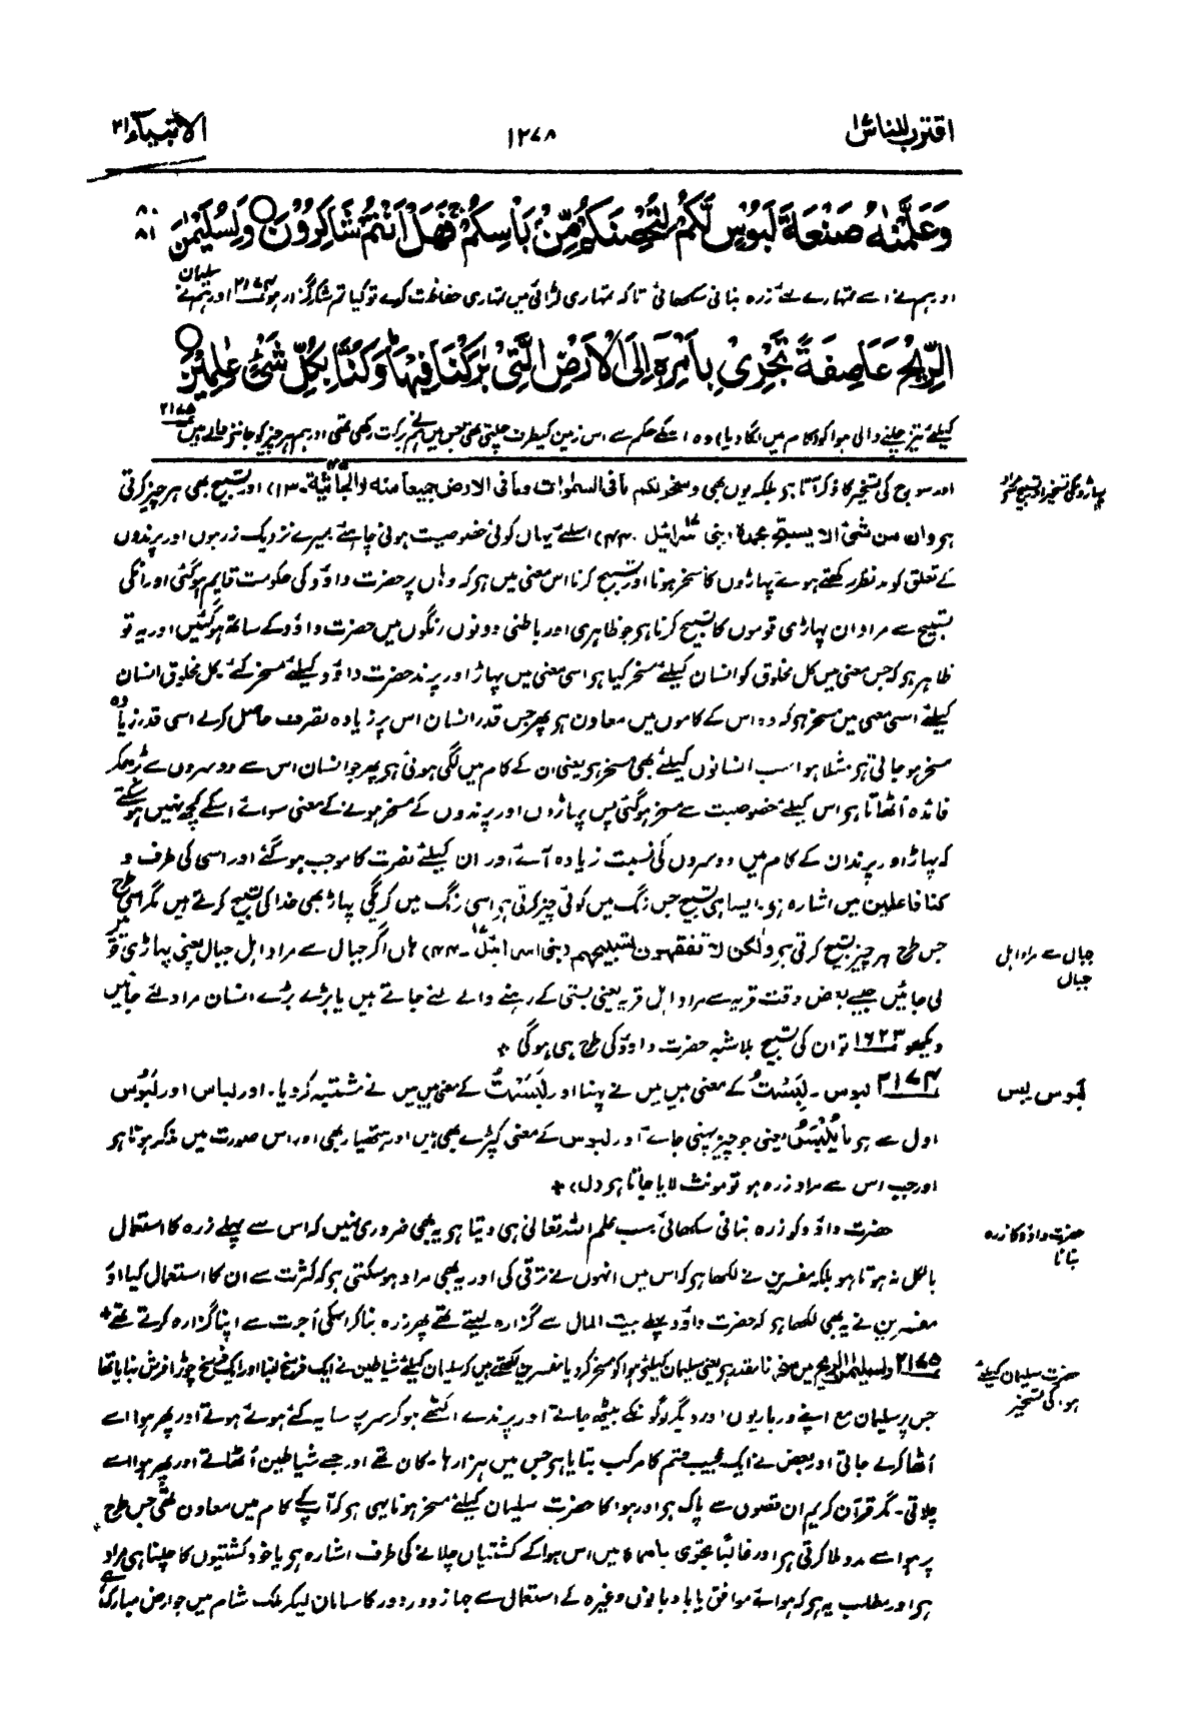 اقترب للناس
۱۲۷۸
الانبیاء ۲۱
وَعَلَّمْنٰهُ صَنْعَةَ لَبُوْسٍ لَّكُمْ لِتُحْصِنَكُمْ مِّنْۢ بَاْسِكُمْ ۚ فَهَلْ اَنْتُمْ شَاكِرُوْنَ ○ وَلِسُلَيْمٰنَ
۸۰
۸۱
اور ہم نے اسے تمہارے لئے زرہ بنانی سکھائی تاکہ تمہاری لڑائی میں تمہاری حفاظت کرے تو کیا تم شکر گزار ہو ۲۱۷۴ اور ہم نے سلیمان
الرِّيْحَ عَاصِفَةً تَجْرِيْ بِاَمْرِهٖۤ اِلَى الْاَرْضِ الَّتِيْ بٰرَكْنَا فِيْهَا ؕ وَكُنَّا بِكُلِّ شَيْءٍ عٰلِمِيْنَ ○
کیلئے تیز چلنے والی ہوا کو (کام میں لگا دیا) وہ اسکے حکم سے اس زمین کیطرف چلتی تھی جس میں ہم نے برکت رکھی تھی اور ہم ہر چیز کو جاننے والے ہیں ۲۱۷۵
اور سورج کی تسخیر کا ذکر آتا ہو بلکہ یوں بھی و سخر لکم ما فی السمٰوات وما فی الارض جمیعا منہ (الجاثیۃ۔۱۳) اور تسبیح بھی ہر چیز کرتی
ہو وان من شئ الا یسبح بحمدہ (بنی اسرائیل۔۴۴) اسلئے یہاں کوئی خصوصیت ہونی چاہئے میرے نزدیک زبور کے اور پرندوں
کے تعلق کو مدنظر رکھتے ہوئے پہاڑوں کا مسخر ہونا اور تسبیح کرنا اس معنی میں ہو کہ وہاں پر حضرت داؤد کی حکومت قایم ہو گئی اور انکی
تسبیح سے مراد ان پہاڑی قوموں کا تسبیح کرنا ہو جو ظاہری اور باطنی دونوں رنگوں میں حضرت داؤد کے ساتھ ہو گئیں اور یہ تو
ظاہر ہو کہ جس معنی میں کل مخلوق کو انسان کیلئے مسخر کیا ہو اسی معنی میں پہاڑ اور پرند حضرت داؤد کیلئے مسخر کئے کل مخلوق انسان
کیلئے اسی معنی میں مسخر ہو کہ وہ اس کے کاموں میں معاون ہو پھر جس قدر انسان اس پر زیادہ تصرف حاصل کرلے اسی قدر زیادہ
مسخر ہو جاتی ہو مثلا ہوا سب انسانوں کیلئے بھی مسخر ہو یعنی ان کے کام میں لگی ہوئی ہو پھر جو انسان اس سے دوسروں سے بڑھکر
فائدہ اُٹھاتا ہو اس کیلئے خصوصیت سے مسخر ہو گئی پس پہاڑوں اور پرندوں کے مسخر ہونے کے معنی سوائے اسکے کچھ نہیں ہو سکتے
کہ پہاڑ اور پرند ان کے کام میں دوسروں کی نسبت زیادہ آئے اور ان کیلئے نصرت کا موجب ہو گئے اور اسی کی طرف و
کنا فاعلین میں اشارہ ہو۔ ایسا ہی تسبیح جس رنگ میں کوئی چیز کرتی ہو اسی رنگ میں کریگی پہاڑ بھی خدا کی تسبیح کرتے ہیں مگر اسی طرح
جس طرح ہر چیز تسبیح کرتی ہو ولٰکن لا تفقھون تسبیحھم (بنی اسرائیل۔۴۴) ہاں اگر جبال سے مراد اہل جبال یعنی پہاڑی قومیں
لی جائیں جیسے بعض وقت قریہ سے مراد اہل قریہ یعنی بستی کے رہنے والے لئے جاتے ہیں یا بڑے بڑے انسان مراد لئے جائیں
دیکھو ۱۶۲۳ تو ان کی تسبیح بلاشبہ حضرت داؤد کی طرح ہی ہو گی +
جبال سے مراد اہل
جبال
۲۱۷۴ لبوس۔ لَبِسْتُ کے معنی ہیں میں نے پہنا اور لَبَسْتُ کے معنی ہیں میں نے مشتبہ کر دیا۔ اور لباس اور لَبُوس
اول سے ہو ما یُلْبَسُ یعنی جو چیز پہنی جائے اور لبوس کے معنی کپڑے بھی ہیں اور ہتھیار بھی اور اس صورت میں مذکر ہوتا ہو
اور جب اس سے مراد زرہ ہو تو مونث لایا جاتا ہو (ل) +
لبوس لبس
حضرت داؤد کو زرہ بنانی سکھائی سب علم اللہ تعالیٰ ہی دیتا ہو یہ بھی ضروری نہیں کہ اس سے پہلے زرہ کا استعمال
بالکل نہ ہوتا ہو بلکہ مفسرین نے لکھا ہو کہ اس میں انہوں نے ترقی کی اور یہ بھی مراد ہو سکتی ہو کہ کثرت سے ان کا استعمال کیا اور
مفسرین نے یہ بھی لکھا ہو کہ حضرت داؤد پہلے بیت المال سے گزارہ لیتے تھے پھر زرہ بنا کر اسکی اُجرت سے اپنا گزارہ کرتے تھے +
حضرت داؤد کا زرہ
بنانا
۲۱۷۵ ولسلیمٰن الریح میں سخرنا مقدر ہو یعنی سلیمان کیلئے ہوا کو مسخر کر دیا مفسرین لکھتے ہیں کہ سلیمان کیلئے شیاطین نے ایک فرسخ لمبا اور ایک فرسخ چوڑا فرش بنایا تھا
جس پر سلیمان مع اپنے درباریوں اور دیگر لوگوں تک بیٹھ جاتے اور پرندے اکٹھے ہو کر سر پر سایہ کئے ہوئے ہوتے اور پھر ہوا اسے
اُٹھا کر لے جاتی اور بعض نے ایک عجیب قسم کا مرکب بتایا ہو جس میں ہزارہا مکان تھے اور جسے شیاطین اُٹھاتے اور پھر ہوا اسے
چلاتی۔ مگر قرآن کریم ان قصوں سے پاک ہو اور ہوا کا حضرت سلیمان کیلئے مسخر ہونا یہی ہو کہ آپکے کام میں معاون تھی جس طرح
پر ہوا سے مدد ملا کرتی ہو اور غالباً تجری بامرہ میں اس ہوا کے کشتیاں چلانے کی طرف اشارہ ہو یا خود کشتیوں کا چلنا ہی مراد
ہو اور مطلب یہ ہو کہ ہوائے موافق یا بادبانوں وغیرہ کے استعمال سے جہاز دور دور کا سامان لیکر ملک شام میں جو ارض مبارک ہے
حضرت سلیمان کیلئے
ہوا کی تسخیر